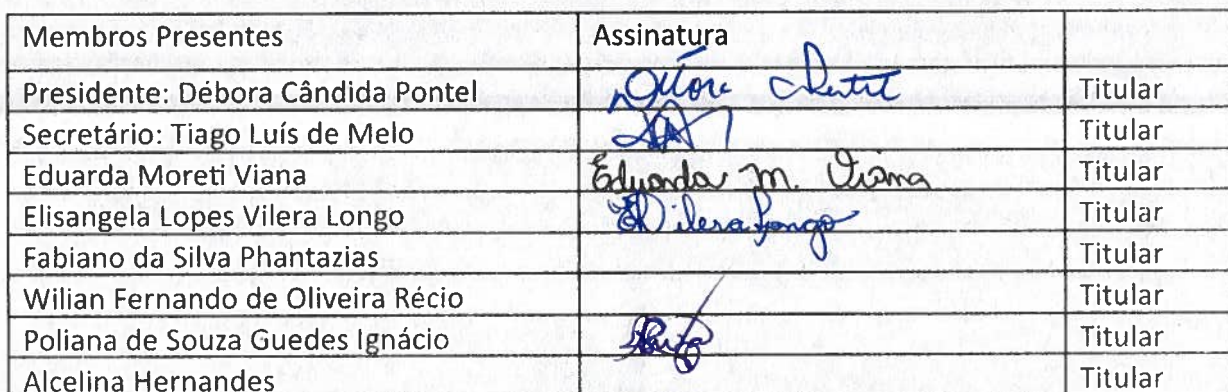 Membros Presentes Assinatura
Presidente: Débora Cândida Pontel Titular
Secretário: Tiago Luís de Melo Titular
Eduarda Moreti Viana Eduarda M. Viana Titular
Elisangela Lopes Vilera Longo EVilera Longo Titular
Fabiano da Silva Phantazias Titular
Wilian Fernando de Oliveira Récio Titular
Poliana de Souza Guedes Ignácio Titular
Alcelina Hernandes Titular